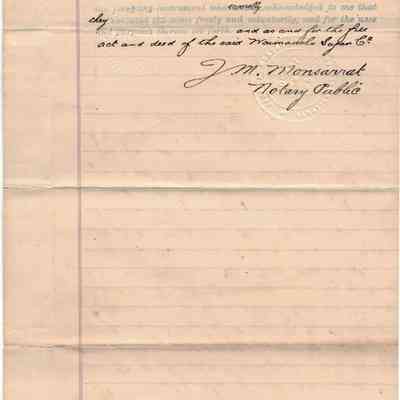 severally
the foregoing instrument and acknowledged to me that
they executed the same freely and voluntarily, and for the uses
and purposes therein set forth. and as and for the free
act and deed of the said Waimanalo Sugar Co.
J M. Monsarrat
Notary Public